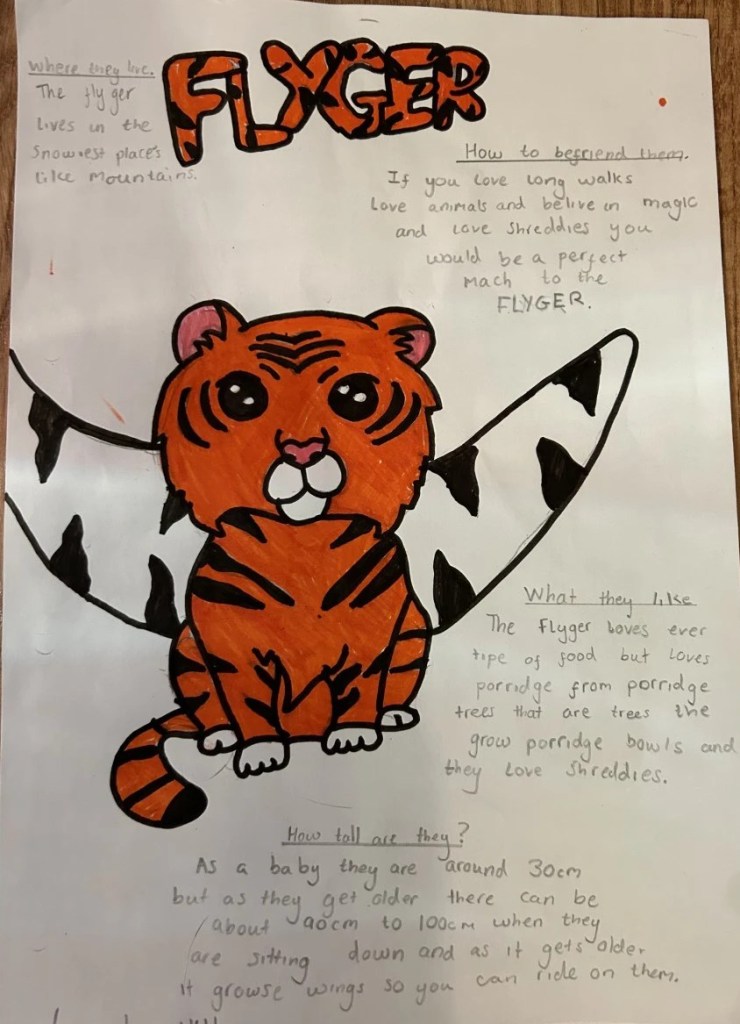 FLYGER
Where they live.
The flyger
lives in the
Snowiest places
like Mountains.
How to befriend them.
If you love long walks
Love animals and belive in magic
and love shreddies you
would be a perfect
Mach to the
FLYGER.
What they like
The Flyger loves ever
tipe of food but loves
porridge from porridge
trees that are trees the
grow porridge bowls and
they love shreddies.
How tall are they?
As a baby they are around 30cm
but as they get older there can be
about 90cm to 100cm when they
are sitting down and as it gets older
it growse wings so you can ride on them.